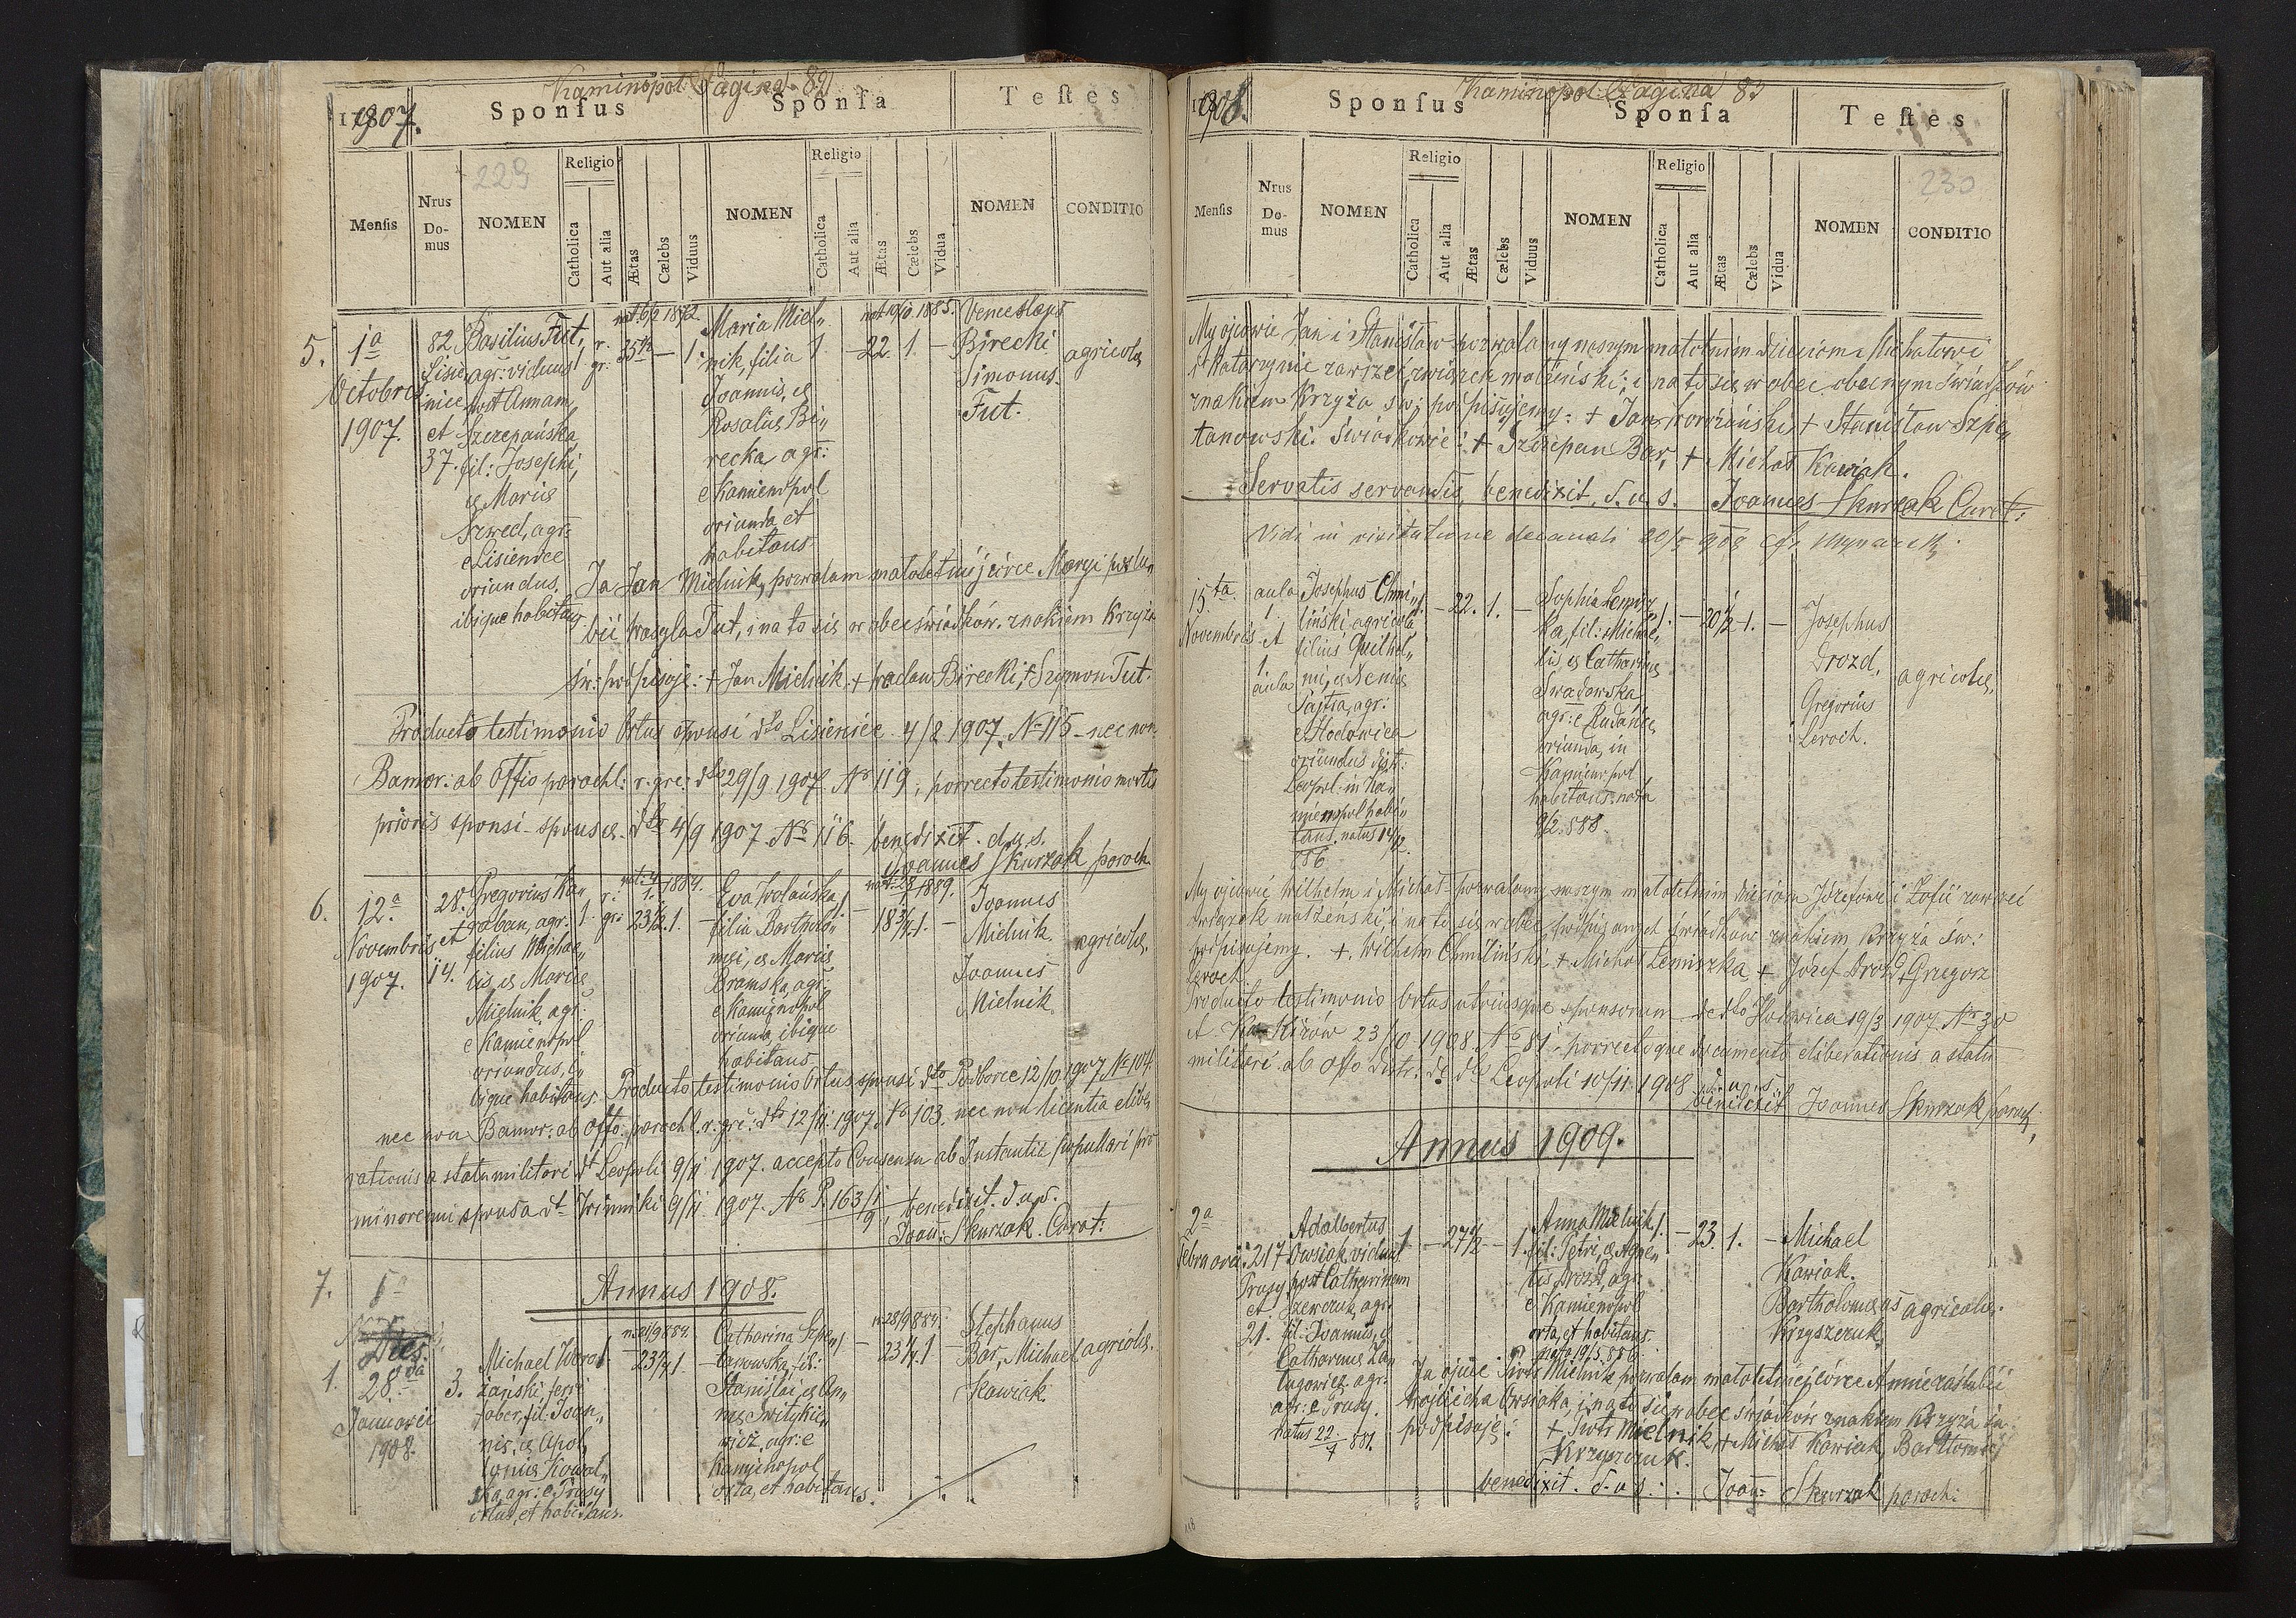 Kaminopol Pagina 82
1907.
Sponsus
Sponsa
Testes
229
Mensis
Nrus Domus
NOMEN
Religio
Catholica
Aut alia
Ætas
Cælebs
Viduus
NOMEN
Religio
Catholica
Aut alia
Ætas
Cælebs
Vidua
NOMEN
CONDITIO
5.
1ª
Octobris
1907.
82
Lisie„
nice
et
37.
Basilius Tut,
agr: viduus
post Annam
Szczepańska,
fil: Josephi,
& Mariæ
Szwed, agr:
e Lisienice
oriundus,
ibique habitans.
1
r.
gr:
nat. 6/2 1872.
35½
—
1.
Maria Miel„
nik, filia
Joannis, &
Rosaliæ Bi„
recka agr:
e Kamienopol
oriunda et
habitans
1
nat 10/10. 1885.
22.
1.
—
Venceslaus
Birecki
Simonus
Tut.
agricolæ
Ja Jan Mielnik, pozwalam małoletniéj córce Maryi poślu„
bić Wasyla Tut, i na to się w obec świadków znakiem Krzyża
św: podpisuję: + Jan Mielnik + Wacław Birecki, + Szymon Tut.
Producto testimonio Ortus sponsi dto Lisienice 4/8 1907. No 115 - nec non
Bannor: ab Offio parochl: r. gre: dto 29/9 1907. No 119, porrecto testimonio mortis
prioris sponsi - sponsæ dto 4/9 1907. No 116. benedixit. d. u. s.
Joannes Skurzak paroch.
6.
12.ª
Novembris
1907.
28.
et
14.
Gregorius Ka„
raban, agr:
filius Michae„
lis, & Mariæ
Mielnik, agr:
e Kamienopol
oriundus, i„
bique habitans.
1.
r.
gr:
nat: 4/1. 1884.
23½.
1.
Eva Wolańska,
filia Bartholo„
mei, & Mariæ
Bramska, agr:
e Kamienopol
oriunda ibique
habitans
1.
1889.
18¾
1.
—
Joannes
Mielnik.
Joannes
Mielnik.
agricolæ.
Producto testimonio Ortus sponsi dto Podborce 12/10 1907 No 104.
nec non Bannor: ab Offo. parochl. r. gre: dto 12/11 1907. No 103. nec non licentia elibe„
rationis a statu militari dt Leopoli 9/11 1907. accepto Consensu ab Instantiæ pupillari pro
minorenni sponsa dt Winniki 9/11 1907. No P. 163/1/9, benedixit. d. u. s.
Joan: Skurzak. Curat:
7.
1.
Annus 1908.
28va
Januarii
1908.
3.
Michael Koro„
żański, ferri
faber, fil: Joan„
nis, & Apol„
loniæ Kowal„
ska, agr: e Prusy
ortus, et habitans.
n. 21/9 884.
23¼
1
Catharina Szpe„
tanowska, fil:
Stanislai, & An„
næ Switykie„
wicz, agr: e
Kamienopol
orta, et habitans.
1
n 28/9 884.
23¼.
1
Stephanus
Bar, Michael
Kawiak
agricolæ.
Kaminopol Pagina 83
1908.
Sponsus
Sponsa
Testes
230
Mensis
Nrus Domus
NOMEN
Religio
Catholica
Aut alia
Ætas
Cælebs
Viduus
NOMEN
Religio
Catholica
Aut alia
Ætas
Cælebs
Vidua
NOMEN
CONDITIO
My ojcowie Jan i Stanisław pozwalamy naszym małoletnim dzieciom Michałowi
i Katarzynie zawrzeć związek małżeński; i na to się w obec obecnym świadków
znakiem Krzyża św; podpisujemy: + Jan Korożański, + Stanisław Szpe„
tanowski. Świadkowie: + Szczepan Bar, + Michał Kawiak.
Servatis servandis, benedixit, d. u. s. Joannes Skurzak Curat:
Vidi in visitatione decanali 20/5 908
15.ta
Novembris
aula
1
et
1
aula
Josephus Chmi„
liński, agricola
filius Guilhel„
mi, &
Sajtra, agr:
e Hodowica
oriundus dist:
Leopol. in Ka„
mienopol habi„
tans. natus 14/12
886
1.
—
22.
1.
—
Sophia Lemisz„
ka, fil: Michae„
lis, & Catharinæ
Swadowska
agr: e Rudańce
oriunda, in
Kamienopol
habitans. nata
9/2. 888.
1.
—
20½
1.
—
Josephus
Drozd.
Gregorius
Leroch.
agricolæ.
My ojcowie Wilhelm i Michał pozwalamy naszym małoletnim dzieciom Józefowi i Zofii zawrzeć
związek małżeński, i na to się w obec podpisanych świadków znakiem Krzyża św:
podpisujemy. +. Wilhelm Chmiliński, + Michał Lemiszka, + Józef Drozd, + Gregorz
Leroch.
Producto testimonio Ortus utriusque sponsorum dedto Hodowica 19/3 1907. No 30
et 23/10 1908. No 81 - porrectoque documento eliberationis a statu
militari ab Offo distr. de dto Leopoli 10/11 1908 d. u. s.
benedixit Joannes Skurzak paroch.
Annus 1909.
2ª
Februarii
217
Prusy
et
21.
Adalbertus
Owsiak, viduus
post Catharinam
Szewczuk, agr:
fil: Joannis, &
Catharinæ Zan„
tugowicz agr:
agr: e Prusy.
natus 22/7 881.
1
—
27½
—
1.
Anna Mielnik,
fil: Petri, & Agne„
tis Drozd, agr:
e Kamienopol
orta, et habitans.
nata 19/5. 886.
1.
—
23.
1.
—
Michael
Kawiak.
Bartholomæus
Krzyszczuk
agricolæ.
Ja ojciec Piotr Mielnik pozwalam małoletniéj córce Annie zaślubić
Wojciecha Owsiaka, i na to się w obec świadków znakiem Krzyża św:
podpisuję: + Piotr Mielnik, + Michał Kawiak, Bartłomiéj
Krzyszczuk.
benedixit. d. u. s. Joan: Skurzak paroch:
118